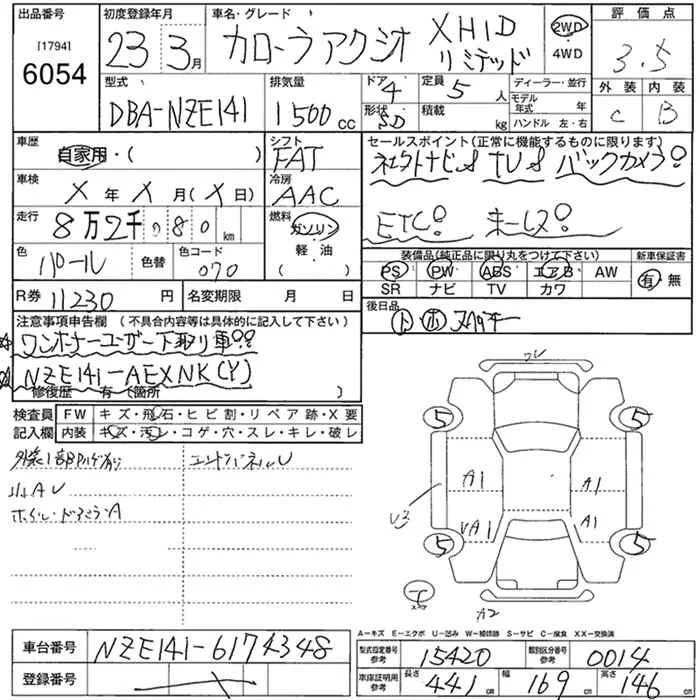 出品番号 初度登録年月 車名・グレード 評価点
[1794]
6054
23年3月 カローラアクシオ XHID リミテッド 2WD 4WD 3.5
型式 排気量 ドア 定員 ディーラー・並行 外装 内装
DBA-NZE141 1500cc 4 5人 モデル年式 年 C B
形状 SD 積載 kg ハンドル 左・右
車歴 シフト セールスポイント(正常に機能するものに限ります)
自家用・( ) FAT 社外ナビ TV バックカメラ
車検 冷房
X年X月(X日) AAC ETC
走行 燃料
8万2千080km ガソリン
軽油
( )
色 色替 色コード 装備品(純正品に限り丸をつけて下さい) 新車保証書
パール 070 PS PW ABS エアB AW 有・無
SR ナビ TV カワ
R券 11230円 名変期限 月 日 後日品
注意事項申告欄(不具合内容等は具体的に記入して下さい) ト ホ
ワンオーナーユーザー下取り車
NZE141-AEXNK(Y)
修復歴 有(箇所 )
検査員 FW キズ・飛石・ヒビ割・リペア跡・X要
記入欄 内装 キズ・汚レ・コゲ・穴・スレ・キレ・破レ
小AU
A1 A1
U3 UA1 A1
5 5
5 5
A2
A-キズ E-エクボ U-凹み W-補修跡 S-サビ C-腐食 XX-交換済
車台番号 NZE141-6174348 型式指定番号 参考 15420 類別区分番号 参考 0014
登録番号 車庫証明用 参考 長さ 441cm 幅 169cm 高さ 146cm